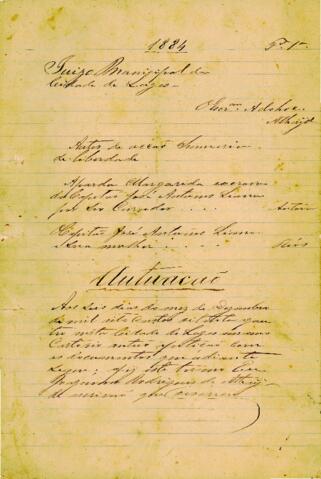 1884 Fl. 1
Juizo Municipal da
Cidade de Lages
O Escrm
Autos de acção Summaria
de liberdade
A parda Margarida escrava
do Capitão José Antonio
por seu Curador . . . Autora
Capitão José Antonio
e sua mulher . . . . Réos
Autuação
Aos seis dias do mez de Dezembro
de mil oito centos e oitenta e qua
tro nesta Cidade de Lages em meu
Cartorio autuei a petição com
os documentos que adiante
seguem; e fiz este termo Eu
Rodrigues de
escrivão que escrevi